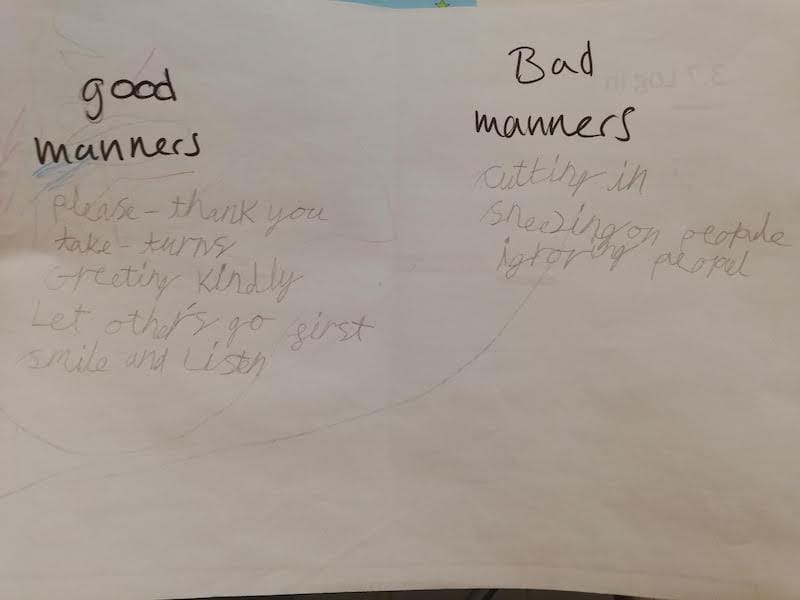 good
manners
please - thank you
take - turns
Greeting kindly
Let other's go first
smile and Listen
Bad
manners
cutting in
sneezing on people
ignoring peopel
3.7 Log in